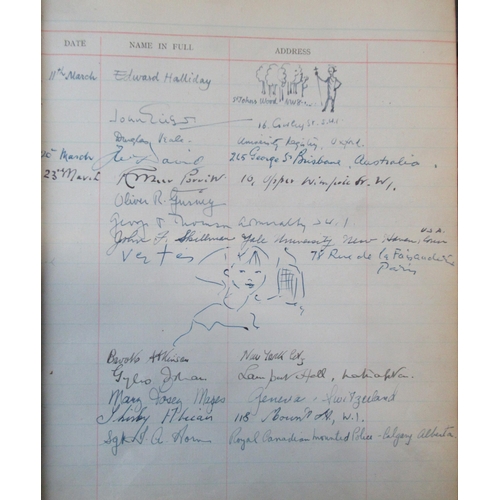 DATE NAME IN FULL ADDRESS
11th March Edward Halliday St Johns Wood NW8
John 16, Cowley St. S.W.1
Douglas Veale University Registry, Oxford
March David 225 George St Brisbane, Australia.
23rd March 10, Upper Wimpole St. W.1.
Oliver R. Gurney
George P. Thomson Admiralty S.W.1
John F. Skillman Yale University New Haven. Conn U.S.A.
Vertes 78 Rue de la Faisanderie
Paris
Brooks Atkinson New York City
Gyles Isham Lamport Hall,
Mary Posey Geneva Switzerland
Shirley 118 Mount St, W.1.
Sgt. A. Royal Canadian Mounted Police - Calgary Alberta